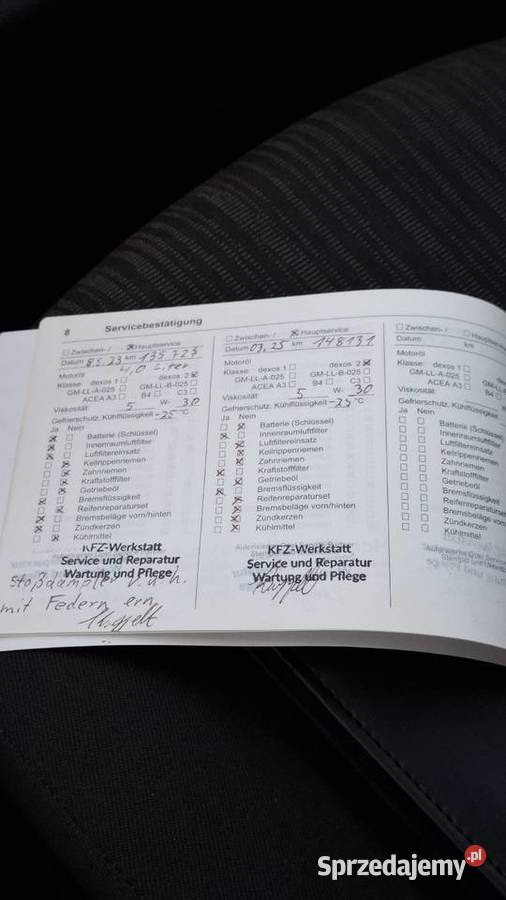 8 Servicebestätigung
☐ Zwischen- / ☒ Hauptservice
Datum 8.5.23 km 135 723
Motoröl 4,0 Liter
Klasse: dexos 1 ☐ dexos 2 ☒
GM-LL-A-025 ☐ GM-LL-B-025 ☐
ACEA A3 ☐ B4 ☐ C3 ☐
Viskosität: 5 W- 30
Gefrierschutz, Kühlflüssigkeit -25 °C
Ja Nein
Batterie (Schlüssel)
Innenraumluftfilter
Luftfiltereinsatz
Keilrippenriemen
Zahnriemen
Kraftstofffilter
Getriebeöl
Bremsflüssigkeit
Reifenreparaturset
Bremsbeläge vorn/hinten
Zündkerzen
Kühlmittel
KFZ-Werkstatt
Service und Reparatur
Wartung und Pflege
Stoßdämpfer v. u. h.
mit Federn ern.
☐ Zwischen- / ☒ Hauptservice
Datum 03.25 km 148131
Motoröl
Klasse: dexos 1 ☐ dexos 2 ☒
GM-LL-A-025 ☐ GM-LL-B-025 ☐
ACEA A3 ☐ B4 ☐ C3 ☐
Viskosität: 5 W- 30
Gefrierschutz, Kühlflüssigkeit -25 °C
Ja Nein
Batterie (Schlüssel)
Innenraumluftfilter
Luftfiltereinsatz
Keilrippenriemen
Zahnriemen
Kraftstofffilter
Getriebeöl
Bremsflüssigkeit
Reifenreparaturset
Bremsbeläge vorn/hinten
Zündkerzen
Kühlmittel
KFZ-Werkstatt
Service und Reparatur
Wartung und Pflege
☐ Zwischen- / ☐
Datum km
Motoröl
Klasse: dexos 1 ☐
GM-LL-A-025 ☐
ACEA A3 ☐ B4
Viskosität:
Gefrierschutz, Kühlflüssigkeit
Ja Nein
Batterie (Schlüssel)
Innenraumluftfilter
Luftfiltereinsatz
Keilrippenriemen
Zahnriemen
Kraftstofffilter
Getriebeöl
Bremsflüssigkeit
Reifenreparaturset
Bremsbeläge
Zündkerzen
Kühlmittel
Sprzedajemy.pl